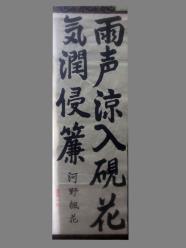 雨声涼入硯花
気潤侵簾
河野楓花